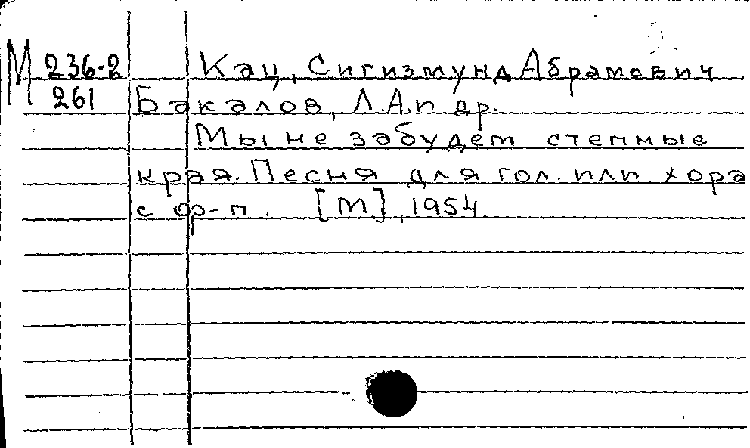 М 236-2 Кац, Сигизмунд Абрамович
261 Бакалов, Л.А. и др.
Мы не забудем степные
края. Песня для гол. или хора
с ф-п. [М], 1954